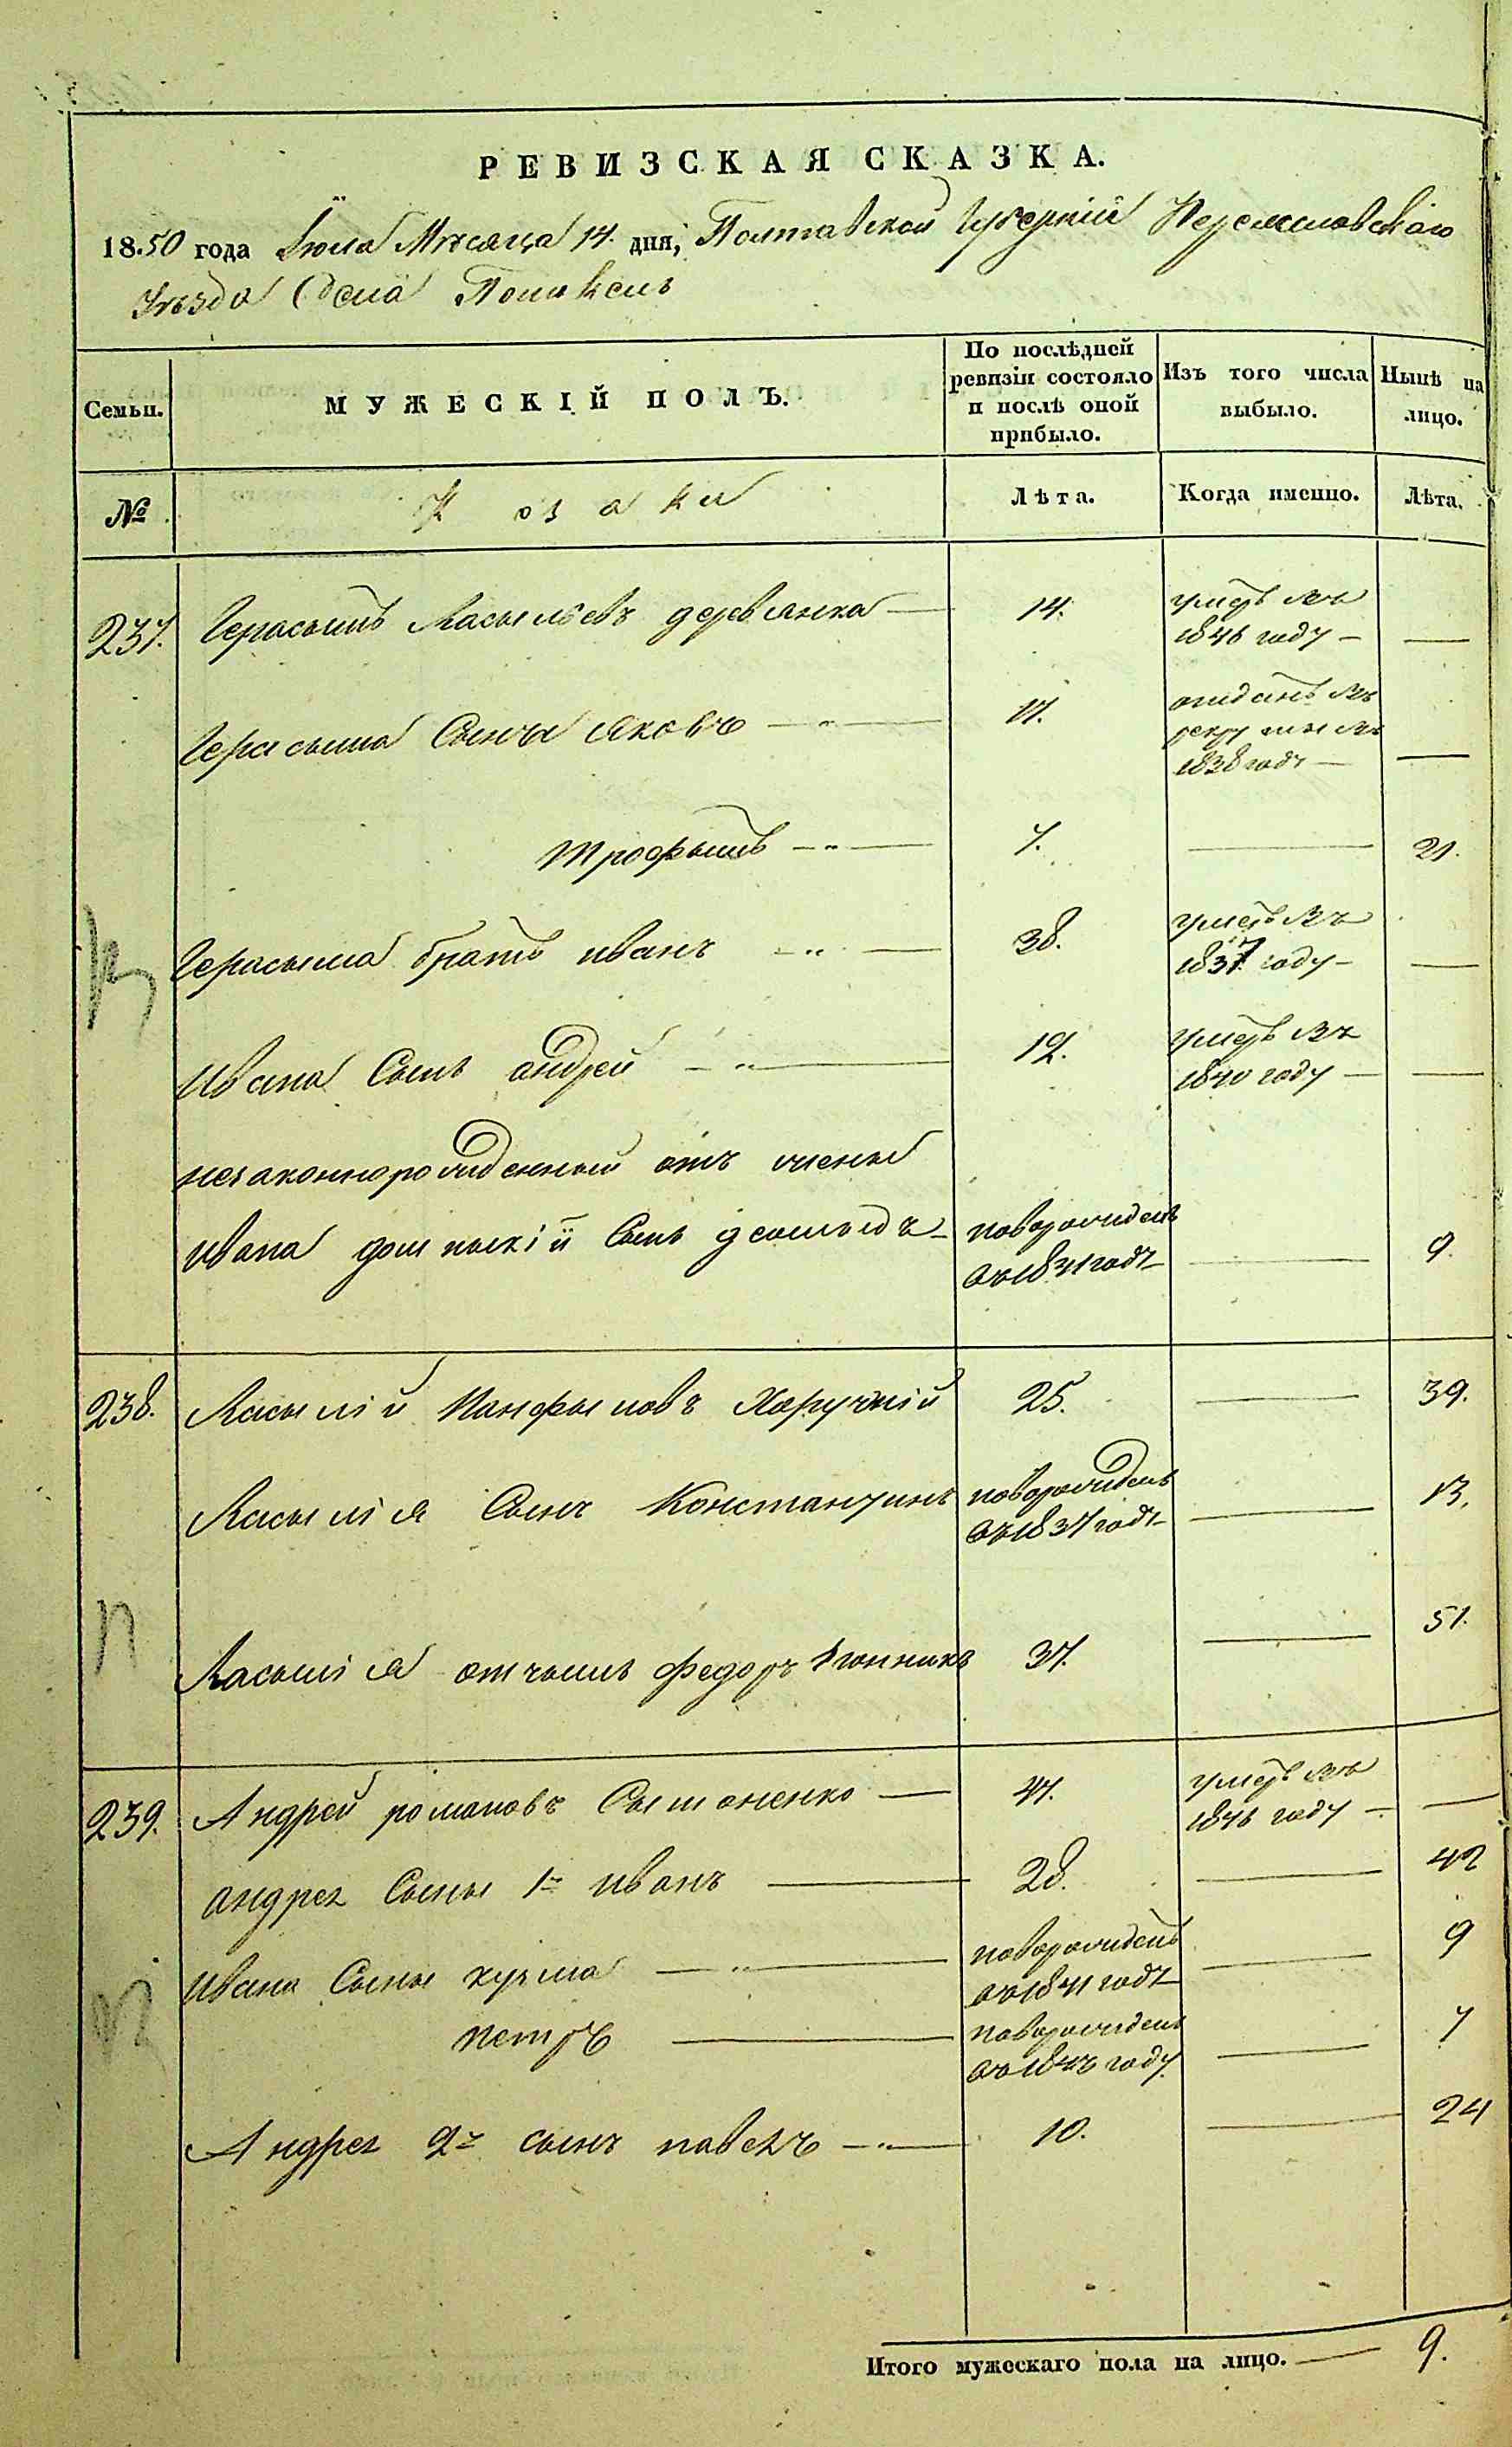 РЕВИЗСКАЯ СКАЗКА.
18.50 года Іюля Мѣсяца 14. дня, Полтавской Губерніи Переяславскаго
Уѣзда Села
Семьи.
МУЖЕСКІЙ ПОЛЪ.
По послѣдней ревизіи состояло и послѣ оной прибыло.
Изъ того числа выбыло.
Нынѣ на лицо.
№
Козаки
Лѣта.
Когда именно.
Лѣта.
237. Герасымъ Васыліевъ деревянка — 14. умеръ въ
1846 году — —
Герасыма Сынъ Яковъ — 17. отданъ въ
рекруты въ
1838 году — —
трофымъ — 7. — 21.
Герасыма братъ иванъ — 38. умеръ въ
1837. году — —
ивана Сынъ андрей — 12. умеръ въ
1840 году — —
незаконнорожденный отъ жены
ивана Сынъ новорожденъ
въ 1841 году — 9.
238. Васылій Панфыловъ Харучній 25. — 39.
Васылія Сынъ Константинъ новорожденъ
въ 1837 году — 13.
Васылія отчымъ федоръ 37. — 51.
239. Андрей романовъ Сымоненко — 47. умеръ въ
1846 году — —
андрея Сыны 1й иванъ — 28. — 42
ивана Сыны кузма — новорожденъ
въ 1841 году — 9
петръ — новорожденъ
въ 1843 году — 7
Андрея 2й сынъ павелъ — 10. — 24
Итого мужескаго пола на лицо. — 9.